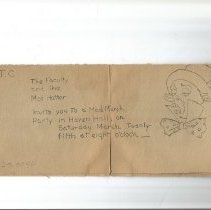 T.C
The Faculty
and the
Mad Hatter
Invite you To a Mad March
Party in Haven Hall, on
Saturday March Twenty
fifth at eight o'clock